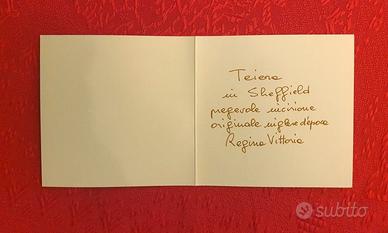 Teiera
in Sheffield
pregevole incisione
originale inglese d'epoca
Regina Vittoria
subito